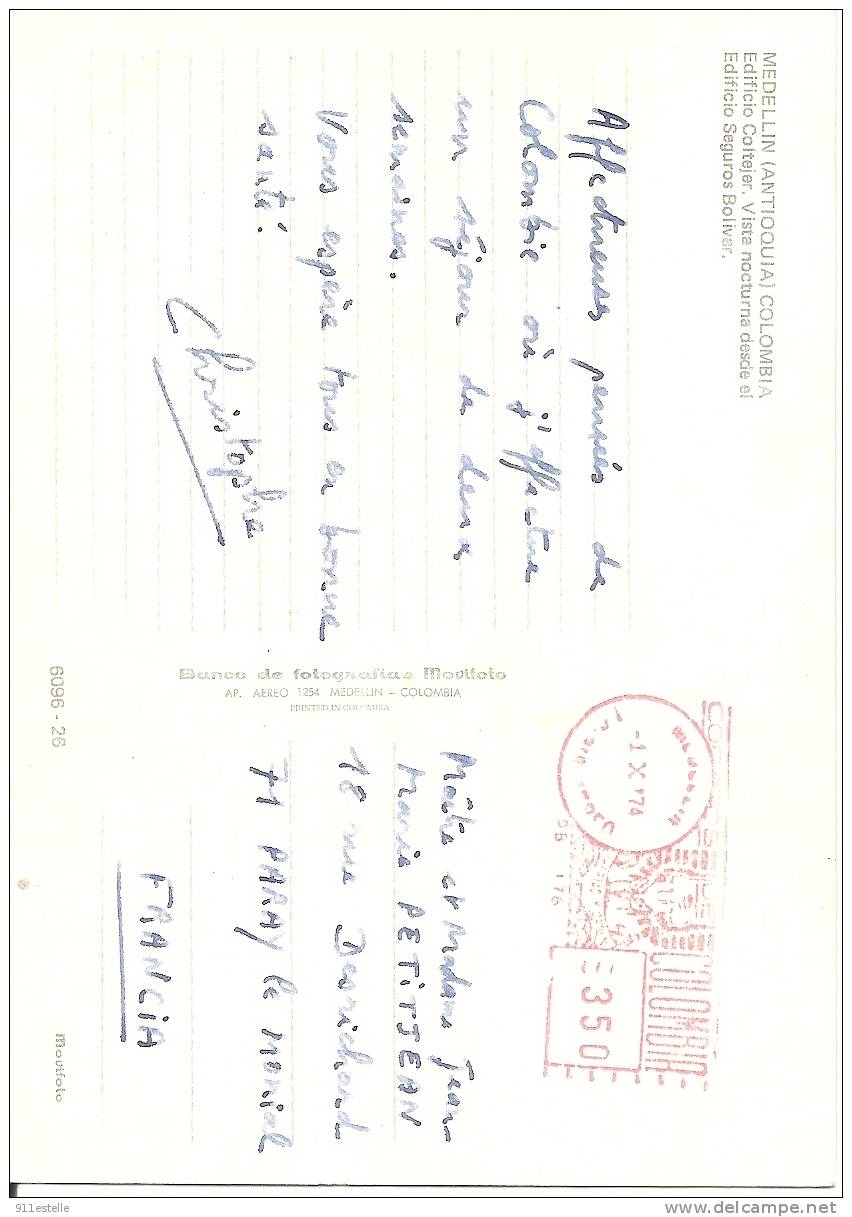 MEDELLIN (ANTIOQUIA) COLOMBIA
Edificio Coltejer. Vista nocturna desde el
Edificio Seguros Bolívar.
Affectueuses pensées de
Colombie où j'effectue
un séjour de deux
semaines.
Vous espère tous en bonne
santé.
Christophe
6096 - 26
Banco de fotografías Movifoto
AP. AEREO 1254 MEDELLIN – COLOMBIA
PRINTED IN COLOMBIA
CORREOS DE COLOMBIA
MEDELLIN
-1 X '74
PB 176
350
Maître et Madame Jean-
Marie PETITJEAN
18 rue Desrichard
71 PARAY le MONIAL
FRANCIA
Movifoto
911estelle
www.delcampe.net